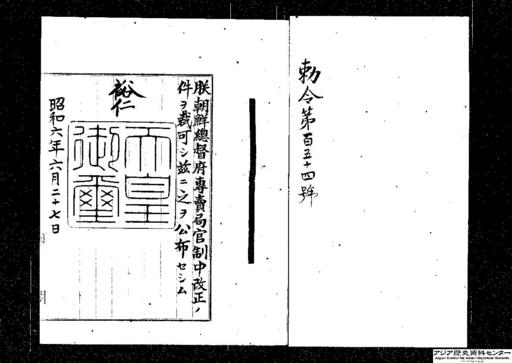 勅令第百五十四號
朕朝鮮總督府專賣局官制中改正ノ
件ヲ裁可シ茲ニ之ヲ公布セシム
裕仁
天皇
御璽
昭和六年六月二十七日
アジア歴史資料センター
Japan Center for Asian Historical Records